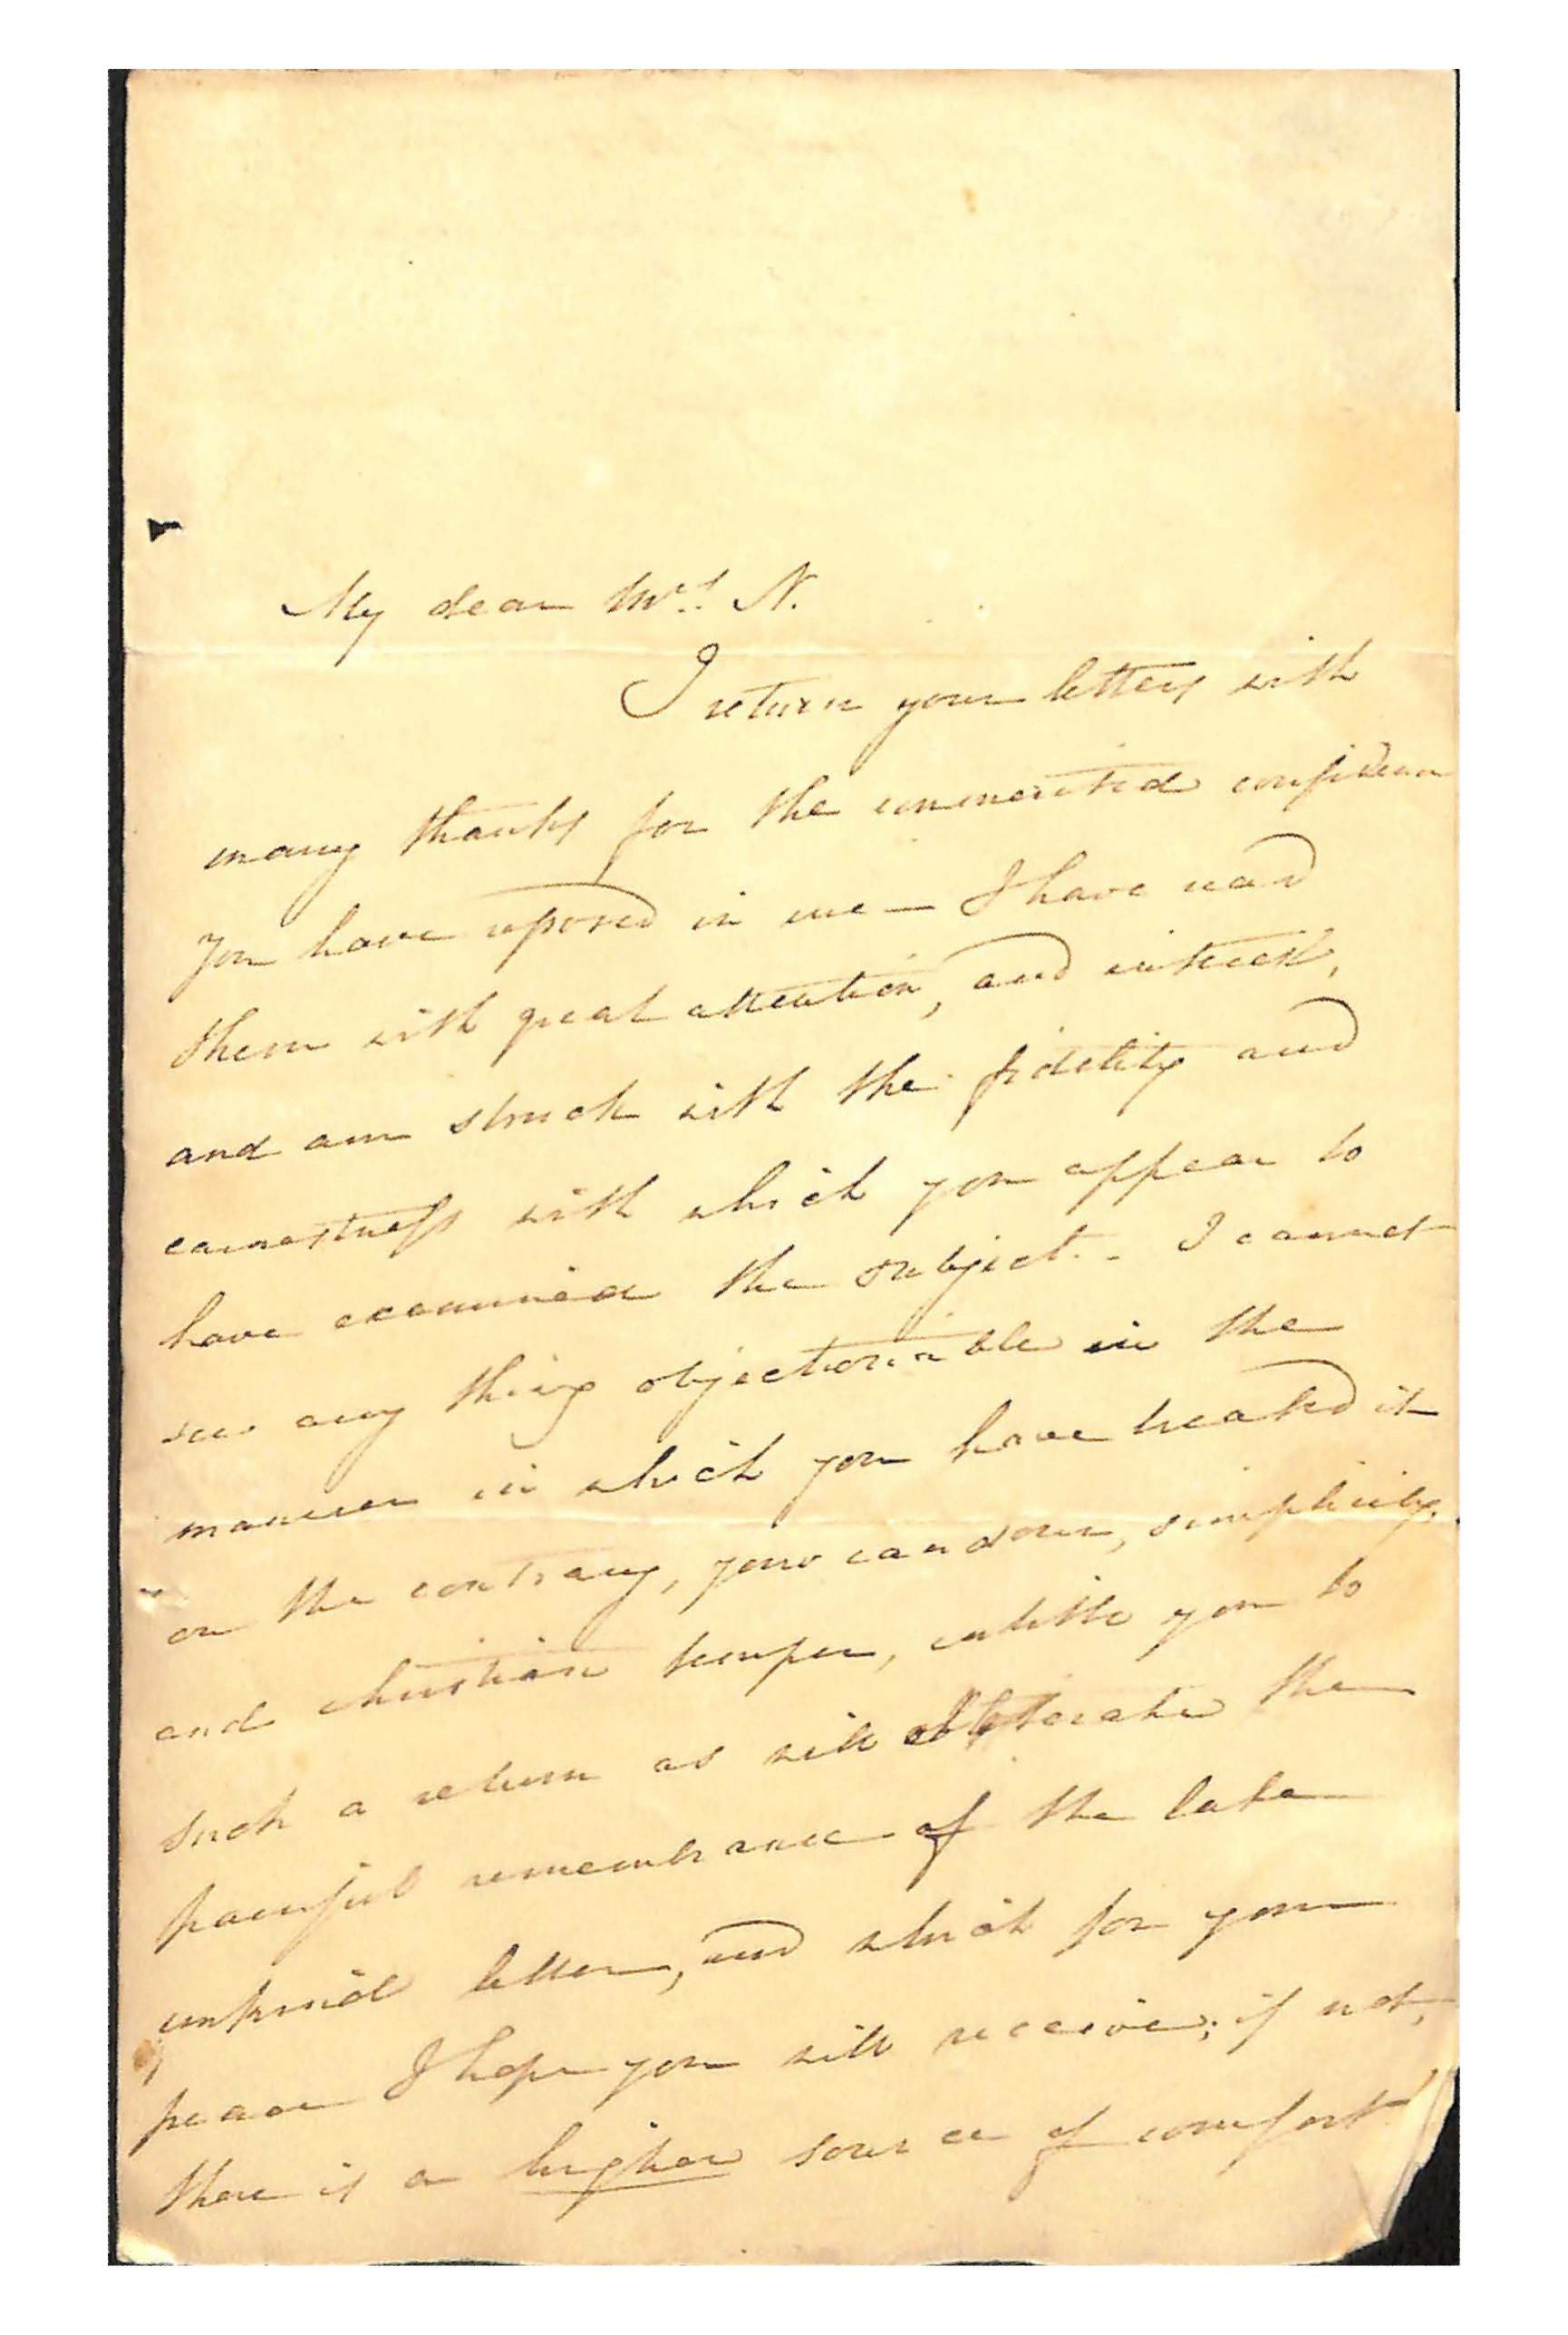 My dear Mrs. N.
I return your letters with
many thanks for the unmerited confidence
you have reposed in me — I have read
them with great attention, and interest,
and am struck with the fidelity and
earnestness with which you appear to
have examined the subject. - I cannot
see any thing objectionable in the
manner in which you have treated it
on the contrary, your candour, simplicity,
and christian temper, entitle you to
such a return as will obliterate the
painful remembrance of the late
unkind letter, and which for your
peace I hope you will receive; if not,
there is a higher source of comfort